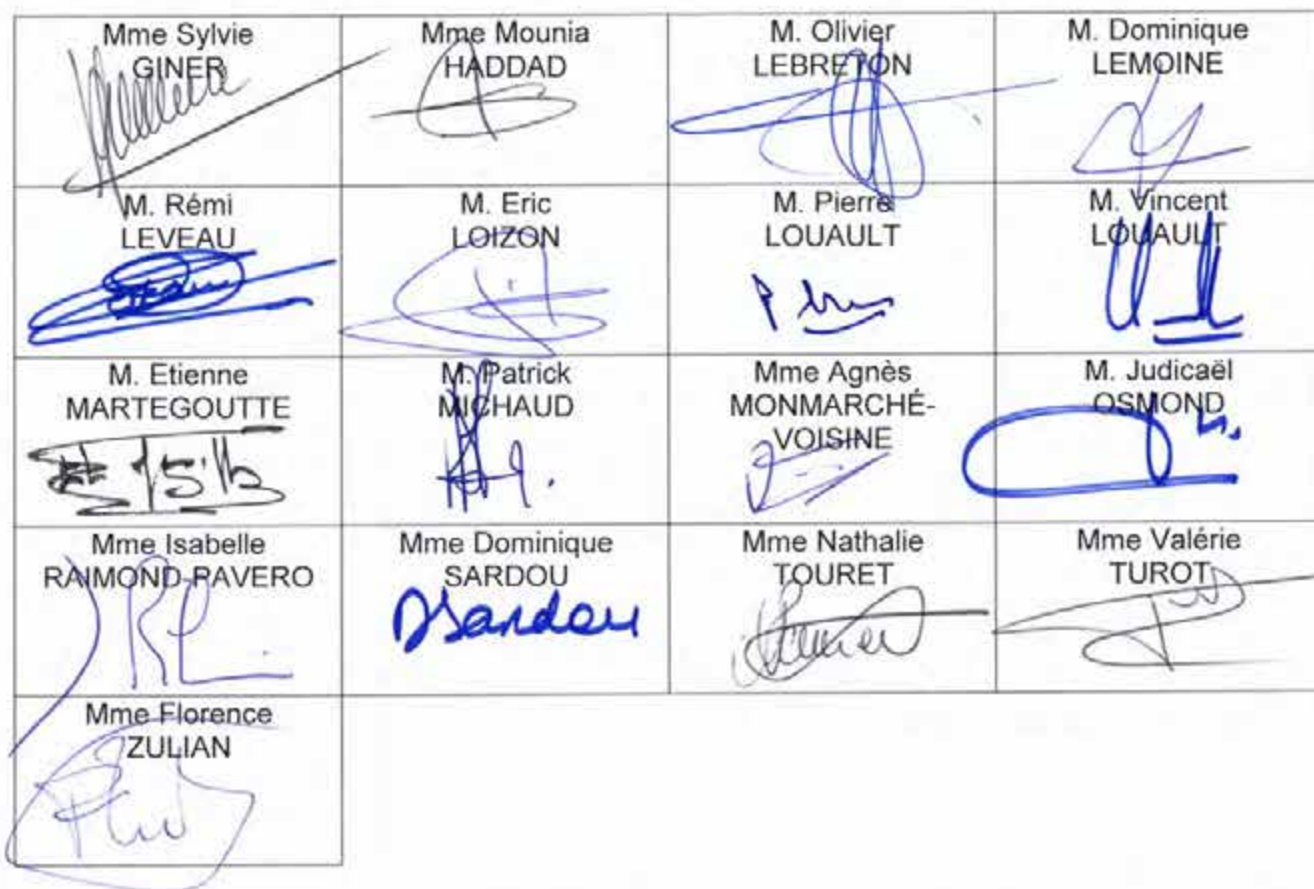 Mme Sylvie
GINER
Mme Mounia
HADDAD
M. Olivier
LEBRETON
M. Dominique
LEMOINE
M. Rémi
LEVEAU
M. Eric
LOIZON
M. Pierre
LOUAULT
M. Vincent
LOUAULT
M. Etienne
MARTEGOUTTE
M. Patrick
MICHAUD
Mme Agnès
MONMARCHÉ-
VOISINE
M. Judicaël
OSMOND
Mme Isabelle
RAIMOND-PAVERO
Mme Dominique
SARDOU
DSardou
Mme Nathalie
TOURET
Mme Valérie
TUROT
Mme Florence
ZULIAN